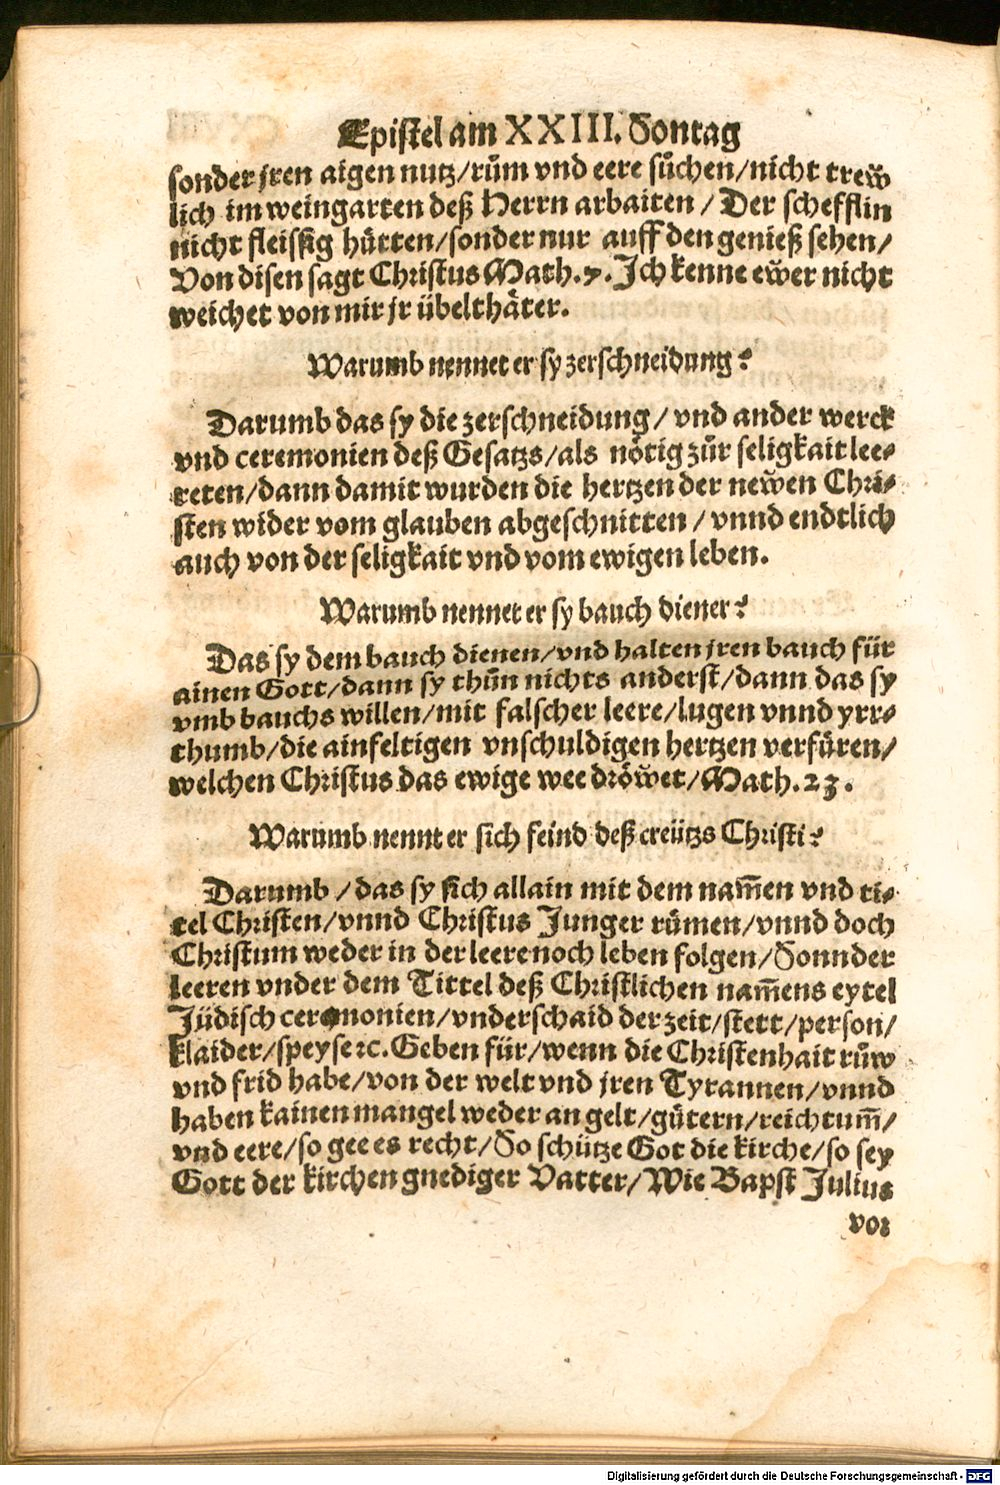 Epistel am XXIII. Sontag
sonder jren aigen nutz/rům vnd eere sůchen/nicht trew̆
lich im weingarten deß Herrn arbaiten/Der schefflin
nicht fleissig hütten/sonder nur auff den genieß sehen/
Von disen sagt Christus Math.7. Ich kenne ew̆er nicht
weichet von mir jr übelthäter.
Warumb nennet er sy zerschneidung?
Darumb das sy die zerschneidung/vnd ander werck
vnd ceremonien deß Gesatzs/als nötig zůr seligkait lee-
reten/dann damit wurden die hertzen der new̆en Chri-
sten wider vom glauben abgeschnitten/vnnd endtlich
auch von der seligkait vnd vom ewigen leben.
Warumb nennet er sy bauch diener?
Das sy dem bauch dienen/vnd halten jren bauch für
ainen Gott/dann sy thůn nichts anderst/dann das sy
vmb bauchs willen/mit falscher leere/lugen vnnd yrr-
thumb/die ainfeltigen vnschuldigen hertzen verfüren/
welchen Christus das ewige wee dröw̆et/Math.23.
Warumb nennt er sich feind deß creützs Christi?
Darumb/das sy sich allain mit dem nam̃en vnd ti-
tel Christen/vnnd Christus Junger rümen/vnnd doch
Christum weder in der leere noch leben folgen/Sonnder
leeren vnder dem Tittel deß Christlichen nam̃ens eytel
Jüdisch ceremonien/vnderschaid der zeit/stett/person/
klaider/speyse ꝛc. Geben für/wenn die Christenhait růw
vnd frid habe/von der welt vnd jren Tyrannen/vnnd
haben kainen mangel weder an gelt/gütern/reichtum̃/
vnd eere/so gee es recht/So schütze Got die kirche/so sey
Gott der kirchen gnediger Vatter/Wie Bapst Julius
vor
Digitalisierung gefördert durch die Deutsche Forschungsgemeinschaft - DFG